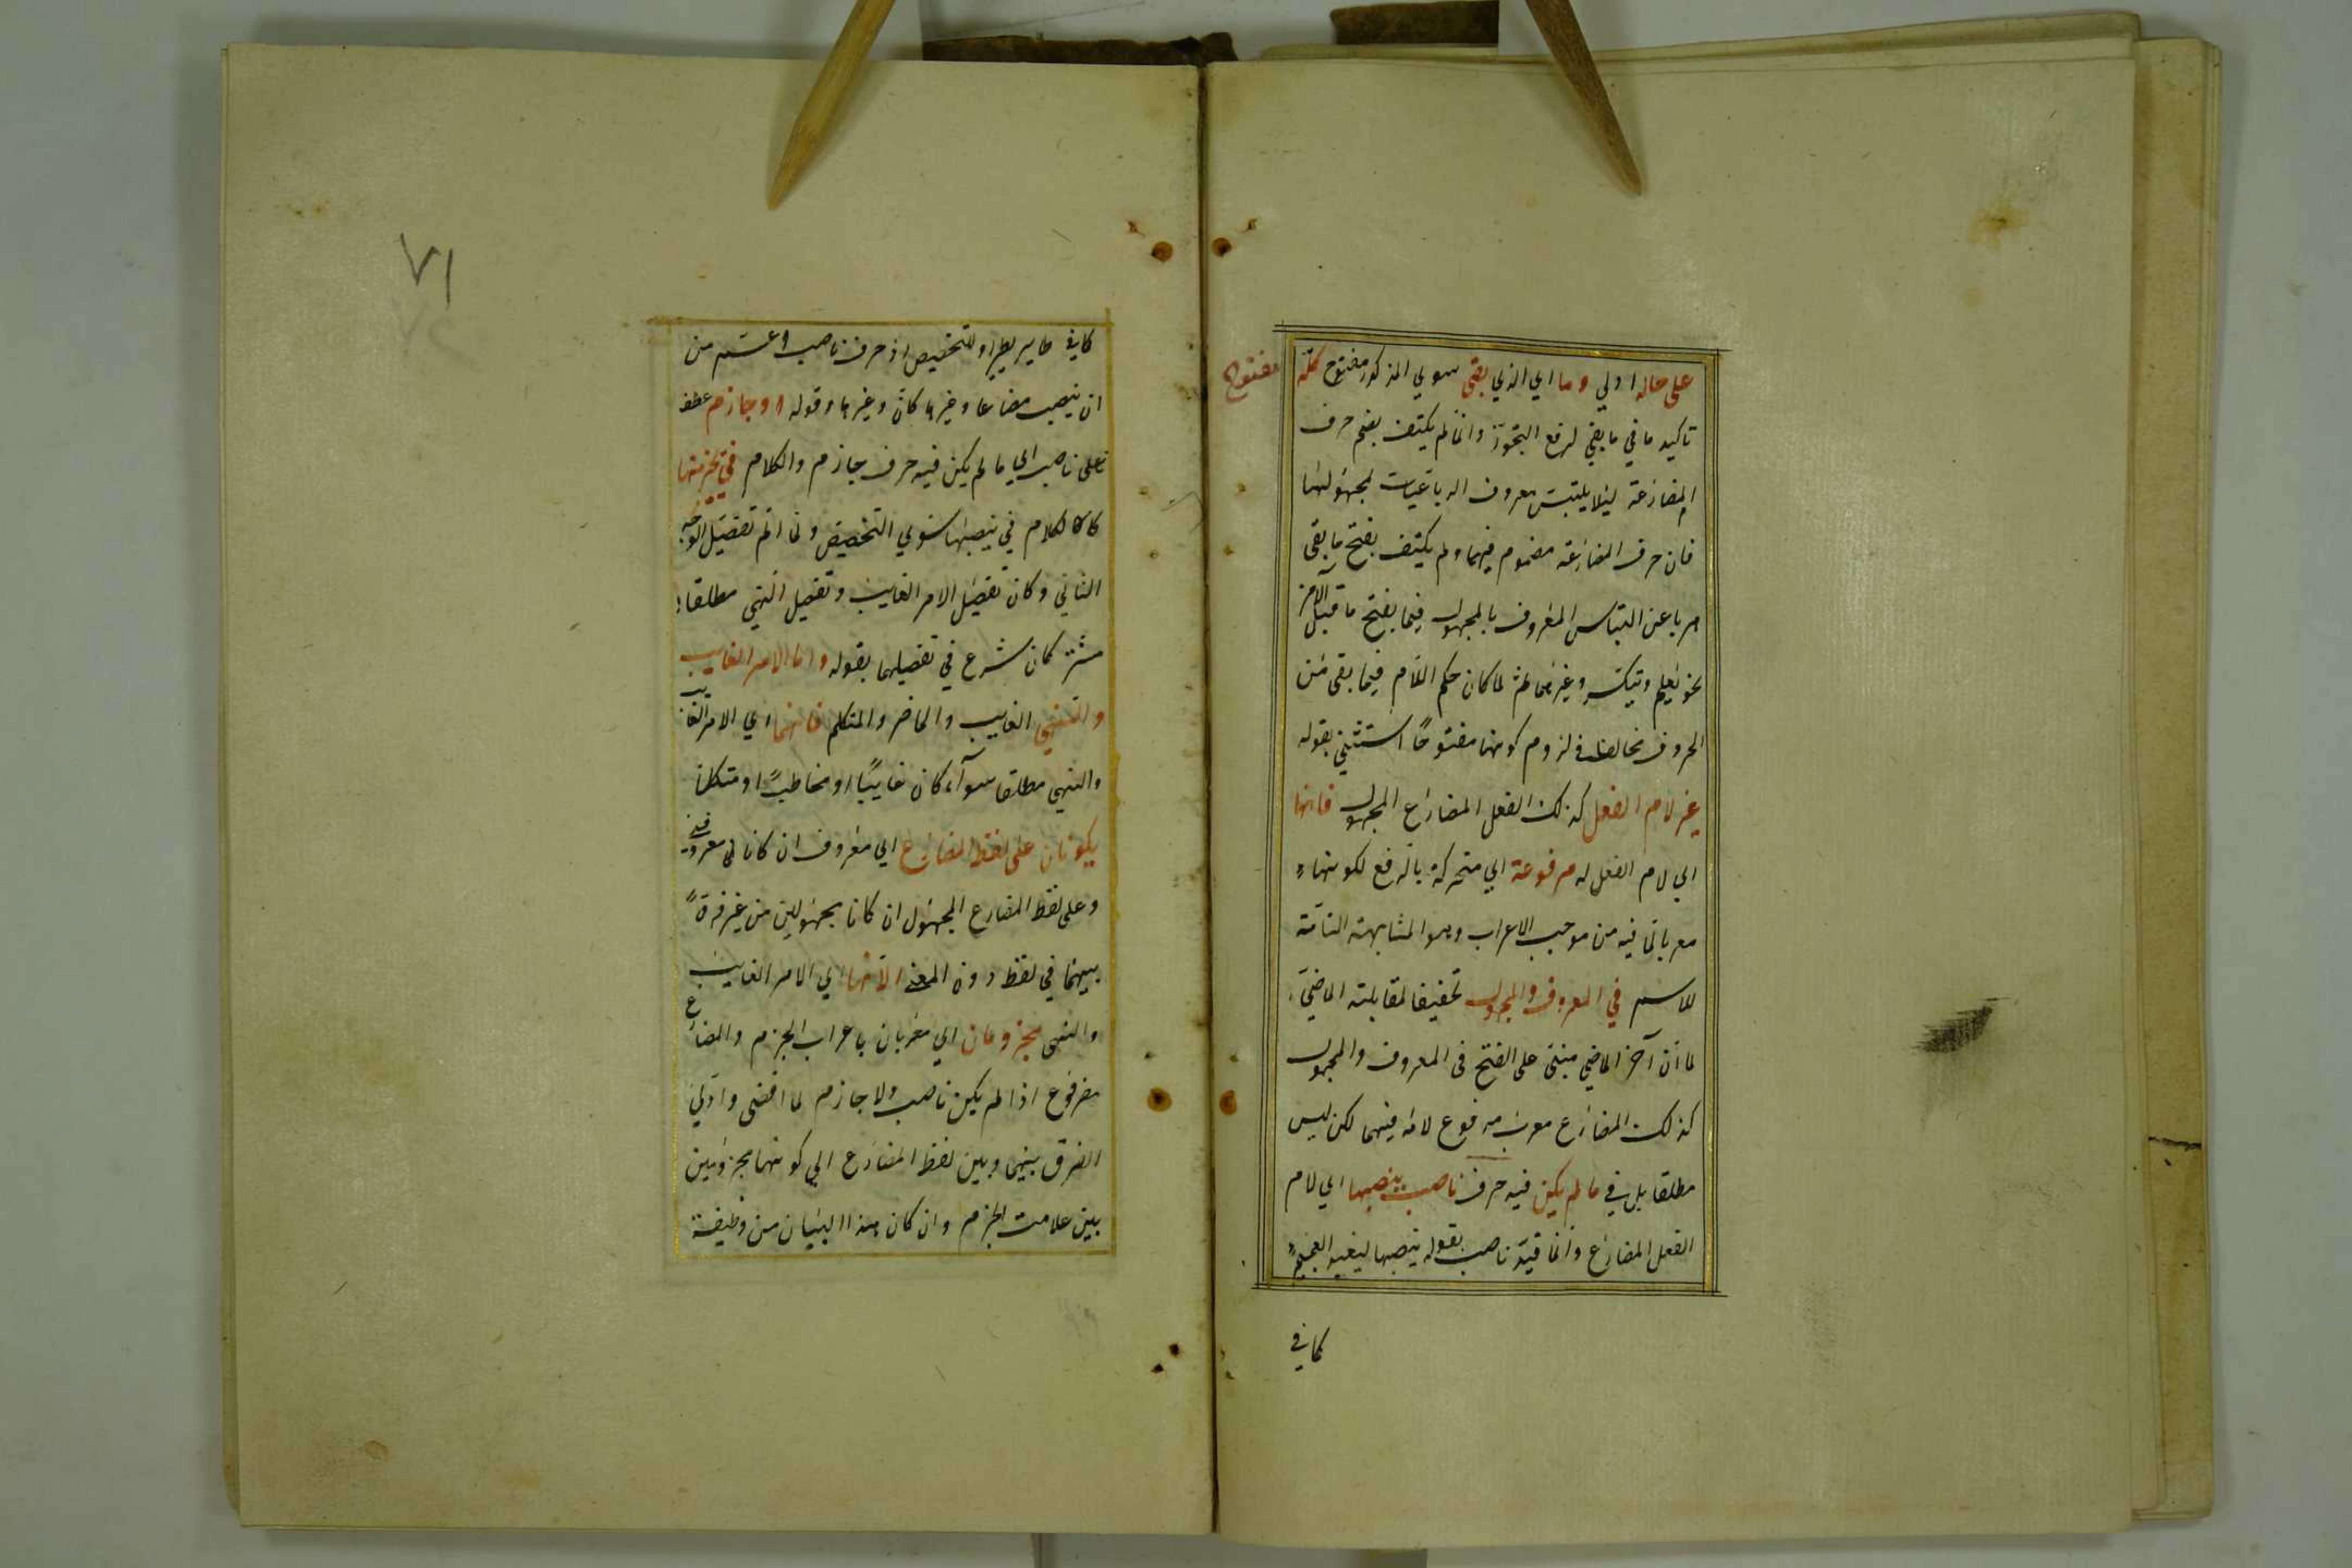 على حاله اولي وما اي الذي بقى سوي المذكور مفتوح كله
مفتوح
تاكيد ما في ما بقي لرفع التجوز وانما لم يكتف بضم حرف
المضارعة ليلا يلتبس معروف الرباعيات لمجهولها
فان حرف المضارعة مضموم فيهما ولم يكتف بفتح ما بقى
هربا عن التباس المعروف بالمجهول فيما يفتح ما قبل الآخر
نحو يعلم وغيرهما ثم لما كان حكم اللام فيما بقى من
الحروف مخالفا في لزوم كونها مفتوحا استثني بقوله
غير لام الفعل كذلك الفعل المضارع المجهول فانها
اي لام الفعل له مرفوعة اي متحركة بالرفع لكونها
معربا فيه من موجب الاعراب وهو المشابهة التامة
للاسم في المعروف والمجهول تحقيقا لمقابلته الماضي
لما ان آخر الماضي مبنى على الفتح فى المعروف والمجهول
كذلك المضارع معرب مرفوع لامه فيهما لكن ليس
مطلقا بل في ما لم يكن فيه حرف ناصب ينصبها اي لام
الفعل المضارع وانما قيد ناصب بقوله ينصبها ليفيد
كما في
٧١
كما في او للتخصيص اذ حرف ناصب اعم من
ان ينصب مضارعا وغيرها كان وغيرها وقوله او جازم عطف
على ناصب اي ما لم يكن فيه حرف جازم والكلام في يجزمها
كالكلام في ينصبها سوي التخصيص ولما اتم تفصيل الوجه
الثاني وكان تفصيل الامر الغايب وتفصيل النهي مطلقا
شرع في تفصيلهما بقوله واما الامر الغايب
والنهي الغايب والحاضر والمتكلم فانهما اي الامر الغايب
والنهي مطلقا سوآء كان غايبًا او مخاطبًا او متكلما
يكونان على لفظ المضارع اي معروف ان كانا معروفين
وعلى لفظ المضارع المجهول ان كانا مجهولين من غير فرق
بينهما في لفظ دون المعنى الا انهما اي الامر الغايب
والنهى مجزومان اي معربان باعراب الجزم والمضارع
مرفوع اذا لم يكن ناصب ولا جازم لما افضى
الفرق بينهما وبين لفظ المضارع الي كونهما مجزومين
بين علامت الجزم وان كان هذا البيان من وظيفة